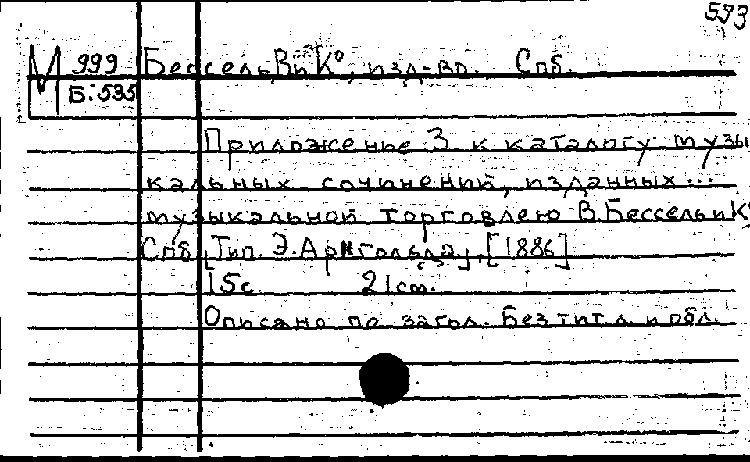 593
М 999 Бессель В и К°, изд-во. Спб.
Б:535
Приложение 3 к каталогу музы
кальных сочинений, изданных...
музыкальной торговлею В. Бессель и К°
Спб, Тип. Э. Арнгольда, [1886]
15с. 21см.
Описано по загол. Без тит л и обл.